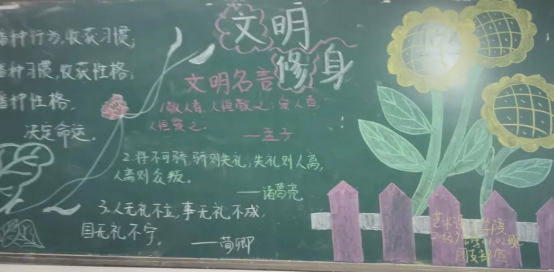 播种行为,收获习惯;
播种习惯,收获性格;
播种性格,
决定命运。
文明
修身
文明名言
1敬人者,人恒敬之;爱人者,
人恒爱之。
——孟子
2.将不可骄,骄则失礼,失礼则人离,
人离则众叛。
——诸葛亮
3.人无礼不立,事无礼不成,
国无礼不宁。
——荀卿